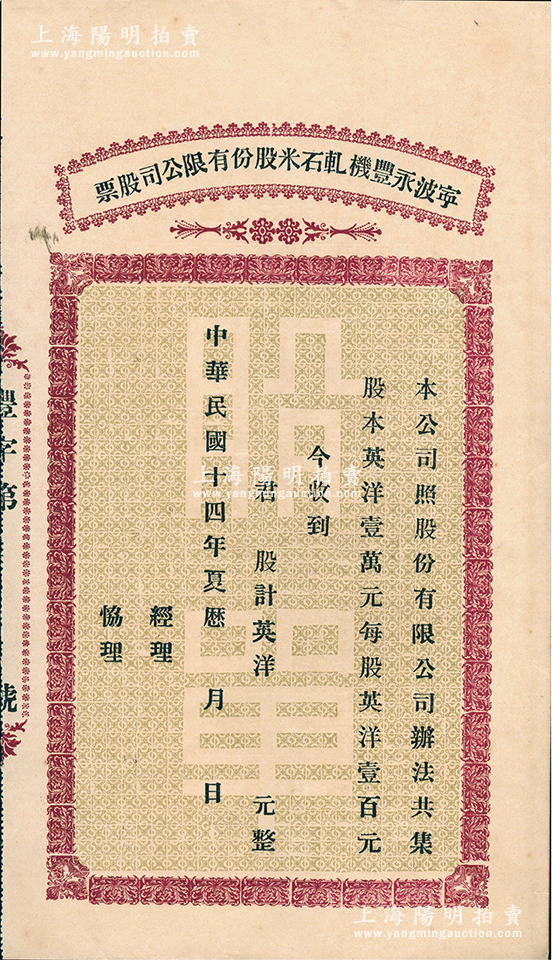 上海陽明拍賣
www.yangmingauction.com
寜波永豐機軋石米股份有限公司股票
本公司照股份有限公司辦法共集
股本英洋壹萬元每股英洋壹百元
今收到
君 股計英洋 元整
中華民國十四年夏曆 月 日
經理
恊理
豐字第 號
上海陽明拍賣
www.yangmingauction.com
上海陽明拍賣
www.yangmingauction.com